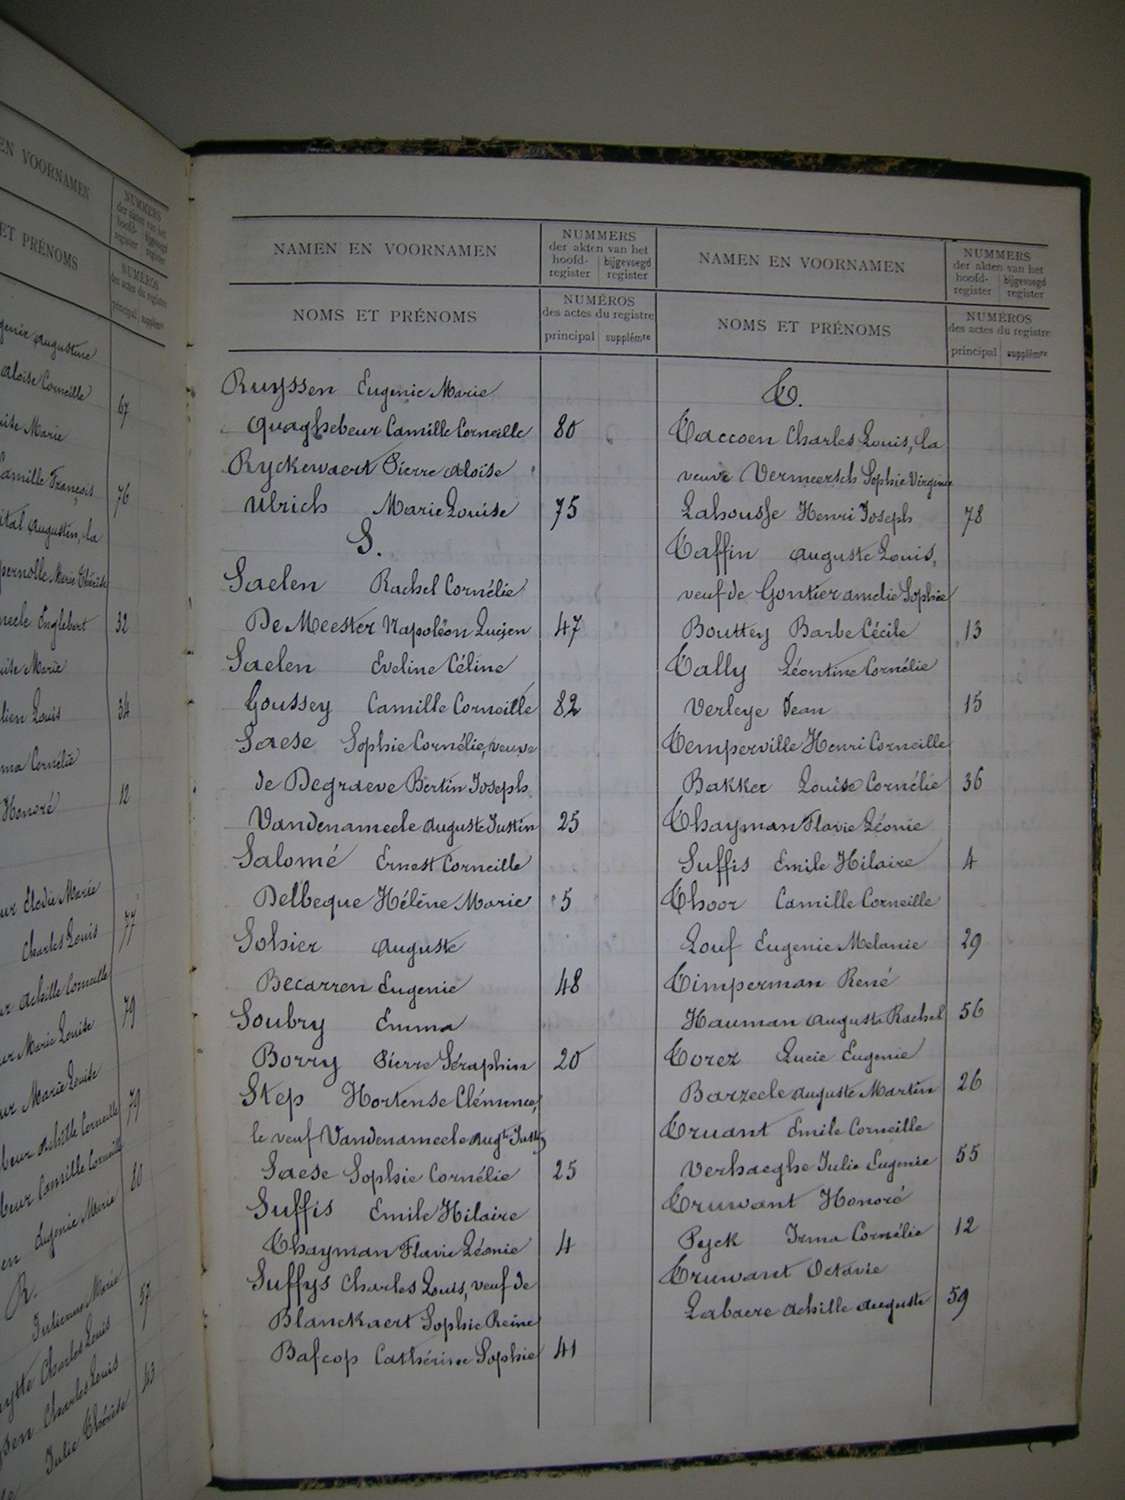 EN VOORNAMEN
NUMMERS
der akten van het
hoofd- bijgevoegd
register register
ET PRÉNOMS
NUMÉROS
des actes du registre
principal supplémte
Augustine
Aloise Corneille 67
Marie
Camille François 76
Augustin, la
Marie Thérèse
Englebert 32
Marie
Louis 34
Cornélie
Honoré 12
Elodie Marie
Charles Louis 77
Achille Corneille
Marie Louise 79
Marie Louise
Achille Corneille 79
Camille Corneille
Eugenie Marie 80
R.
Marie
Charles Louis 57
Charles Louis
Julie Thérèse 43
NAMEN EN VOORNAMEN
NUMMERS
der akten van het
hoofd- bijgevoegd
register register
NOMS ET PRÉNOMS
NUMÉROS
des actes du registre
principal supplémte
Ruyssen Eugenie Marie
Quaghebeur Camille Corneille 80
Ryckewaert Pierre Aloise
Ulrich Marie Louise 75
S.
Saelen Rachel Cornélie
De Meester Napoléon Lucien 47
Saelen Eveline Céline
Goussey Camille Corneille 82
Saese Sophie Cornélie, veuve
de Degraeve Bertin Joseph
Vandenameele Auguste Justin 25
Salomé Ernest Corneille
Delbeque Hélène Marie 5
Sohier Auguste
Becarren Eugenie 48
Soubry Emma
Borry Pierre Séraphin 20
Step Hortense Clémence,
le veuf Vandenameele Augte Justin
Saese Sophie Cornélie 25
Suffis Emile Hilaire
Thayman Flavie Léonie 4
Suffys Charles Louis, veuf de
Blanckaert Sophie Reine
Bafcop Cathérine Sophie 41
NAMEN EN VOORNAMEN
NUMMERS
der akten van het
hoofd- bijgevoegd
register register
NOMS ET PRÉNOMS
NUMÉROS
des actes du registre
principal supplémte
T.
Taccoen Charles Louis, la
veuve Vermeersch Sophie Virginie
Lahousse Henri Joseph 78
Taffin Auguste Louis,
veuf de Gontier Amelie Sophie
Bouttey Barbe Cécile 13
Tally Léontine Cornélie
Verleye Jean 15
Temperville Henri Corneille
Bakker Louise Cornélie 36
Thayman Flavie Léonie
Suffis Emile Hilaire 4
Thoor Camille Corneille
Louf Eugenie Melanie 29
Timperman René
Hauman Augusta Rachel 56
Torez Lucie Eugenie
Barzeele Auguste Martin 26
Truant Emile Corneille
Verhaeghe Julie Eugenie 55
Truwant Honoré
Pyck Irma Cornélie 12
Truwant Octavie
Labaere Achille Auguste 59